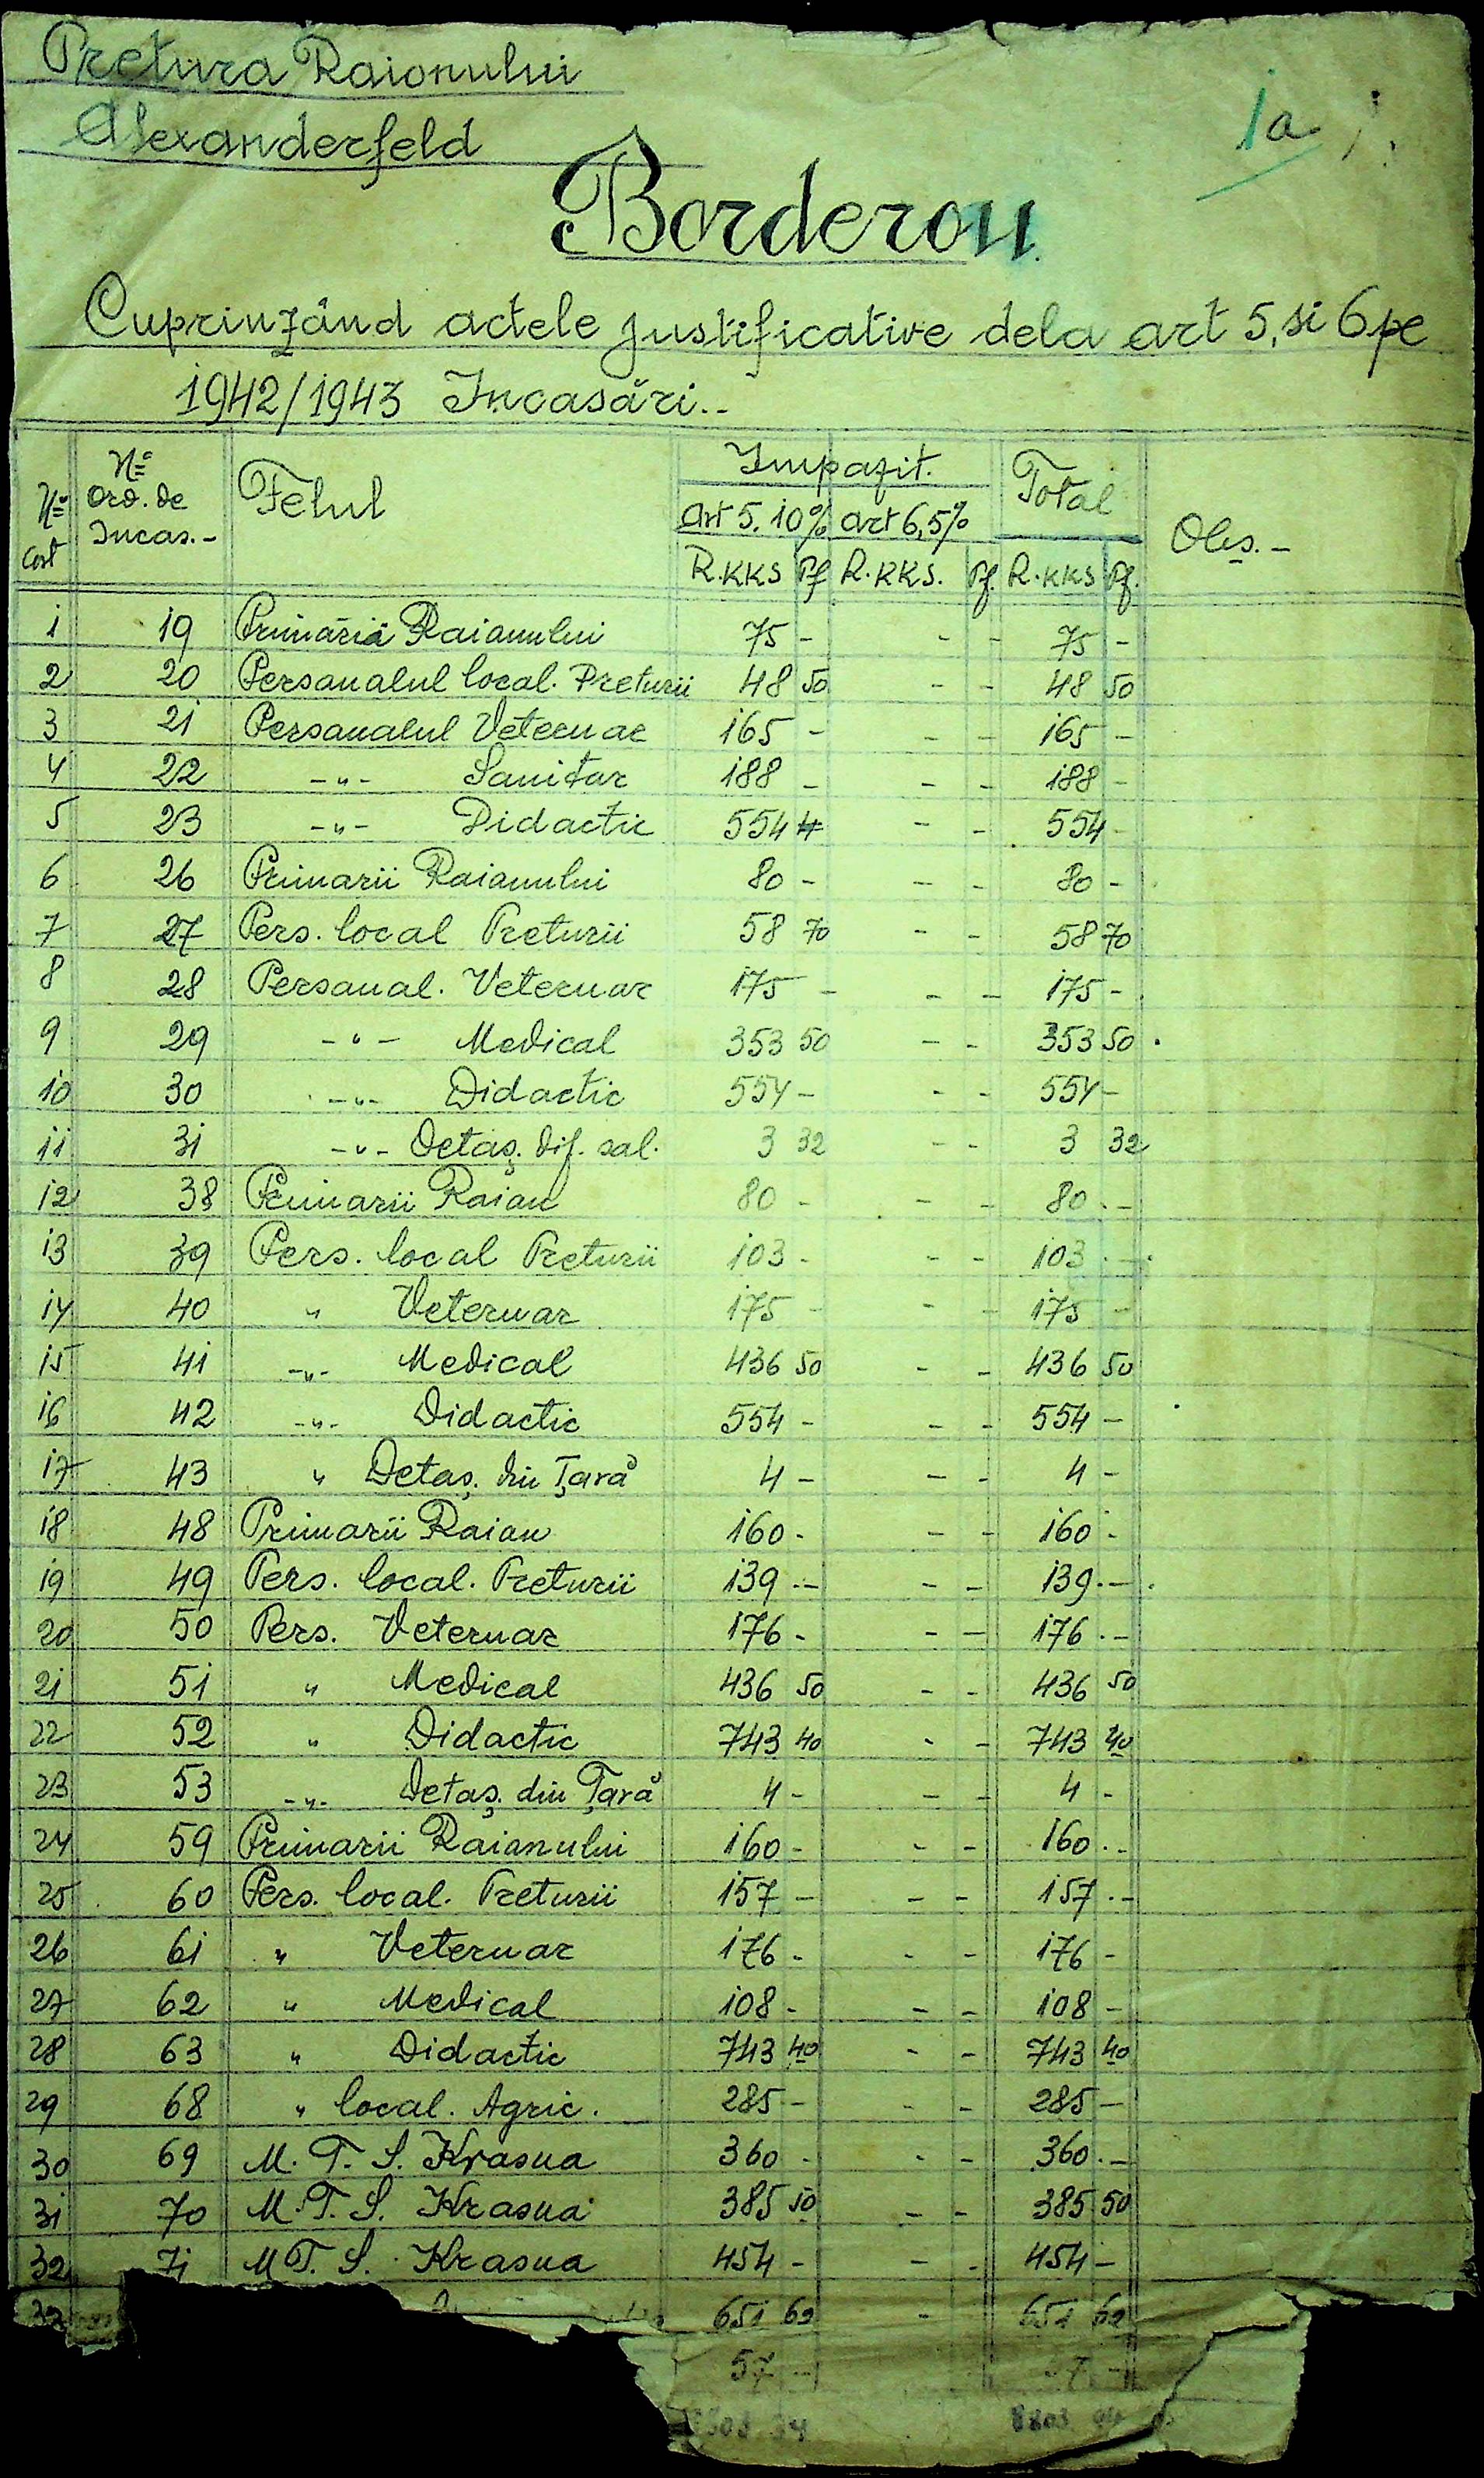 Pretura Raionului
Alexanderfeld
1a
Borderou
Cuprinzând actele justificative dela art 5, si 6 pe
1942/1943 Incasări..
No Cert | No Ord. de Incas.- | Felul | Impozit. | Total | Obs.-
Art 5. 10% | art 6,5%
R.KKS | Pf | R.KKS. | Pf. | R.KKS | Pf.
1 19 Primăria Raionului 75 - - - 75 -
2 20 Personalul local. Preturii 48 50 - - 48 50
3 21 Personalul Veternar 165 - - - 165 -
4 22 -"- Sanitar 188 - - - 188 -
5 23 -"- Didactic 554 - - 554 -
6 26 Primarii Raionului 80 - - - 80 -
7 27 Pers. local Preturii 58 70 - - 58 70
8 28 Personal. Veternar 175 - - - 175 -
9 29 -"- Medical 353 50 - - 353 50
10 30 -"- Didactic 554 - - - 554 -
11 31 -"- Detaș. dif. sal. 3 32 - - 3 32
12 38 Primarii Raion 80 - - - 80 . -
13 39 Pers. local Preturii 103 - - - 103 . -
14 40 " Veternar 175 - - - 175 -
15 41 -"- Medical 436 50 - - 436 50
16 42 -"- Didactic 554 - - - 554 -
17 43 " Detaș. din Țară 4 - - - 4 -
18 48 Primarii Raion 160 - - - 160 -
19 49 Pers. local. Preturii 139 . - - - 139 . -
20 50 Pers. Veternar 176 - - - 176 . -
21 51 " Medical 436 50 - - 436 50
22 52 " Didactic 743 40 - - 743 40
23 53 -"- Detaș. din Țară 4 - - - 4 -
24 59 Primarii Raionului 160 - - - 160 . -
25 60 Pers. local. Preturii 157 - - - 157 . -
26 61 " Veternar 176 - - - 176 -
27 62 " Medical 108 - - - 108 -
28 63 " Didactic 743 40 - - 743 40
29 68 " local. Agric. 285 - - - 285 -
30 69 M. T. S. Krasna 360 - - - 360 . -
31 70 M. T. S. Krasna 385 50 - - 385 50
32 71 M T. S. Krasna 454 - - - 454 -
33 651 62 - 651 62
57 - 57 -
8803 94